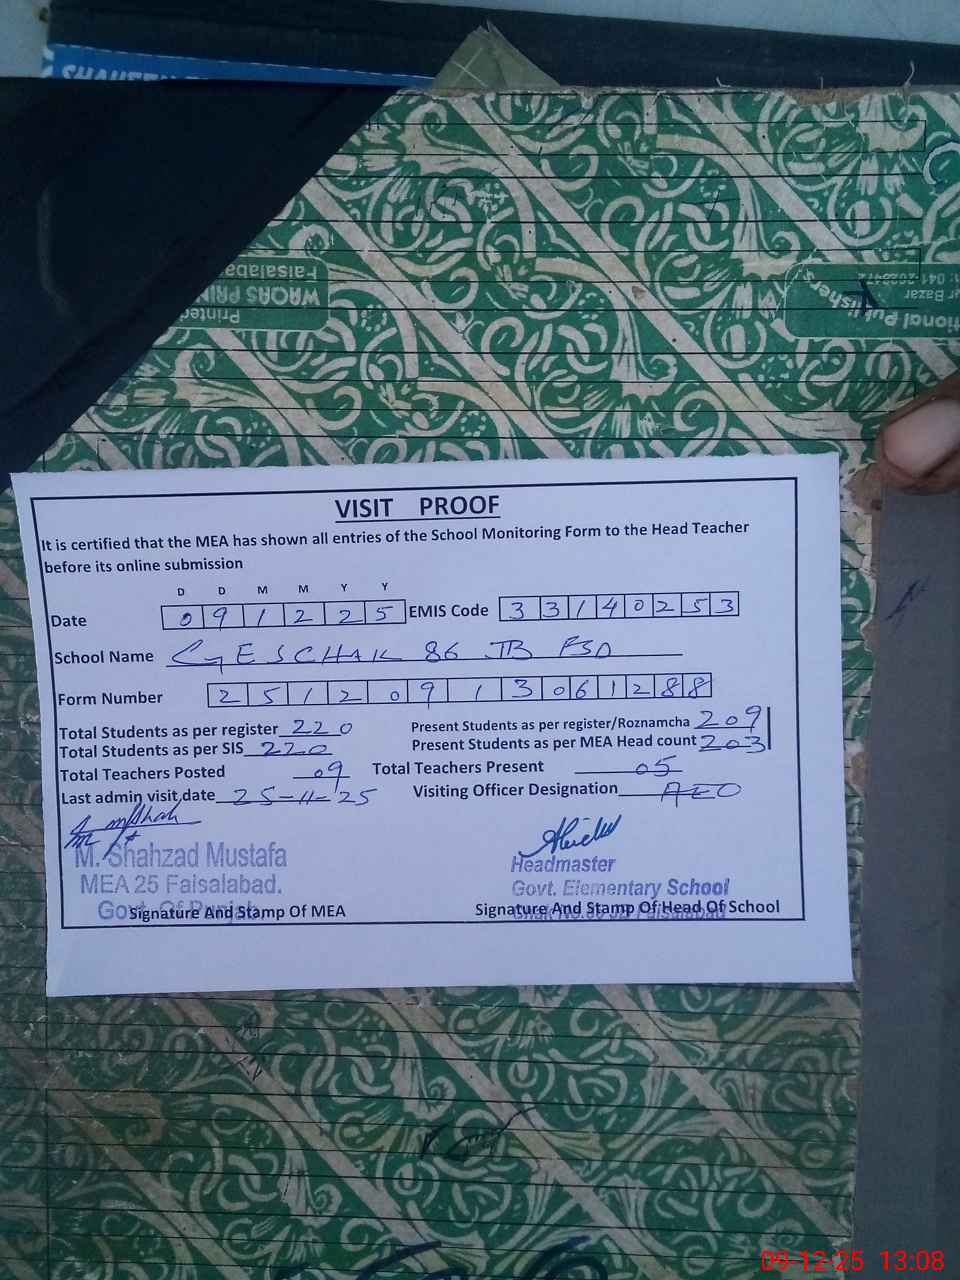 Faisalabad
WAQAS PRIN
Printed
041-2626412
r Bazar
tional Publisher
VISIT PROOF
It is certified that the MEA has shown all entries of the School Monitoring Form to the Head Teacher
before its online submission
D D M M Y Y
Date 0 9 1 2 2 5 EMIS Code 3 3 1 4 0 2 5 3
School Name GES CHAK 86 JB FSD
Form Number 2 5 1 2 0 9 1 3 0 6 1 2 8 8
Total Students as per register 220 Present Students as per register/Roznamcha 209
Total Students as per SIS 220 Present Students as per MEA Head count 203
Total Teachers Posted 09 Total Teachers Present 05
Last admin visit date 25-11-25 Visiting Officer Designation AEO
M. Shahzad Mustafa Headmaster
MEA 25 Faisalabad. Govt. Elementary School
Govt. Of Punjab Faisalabad
Signature And Stamp Of MEA Signature And Stamp Of Head Of School
09-12-25 13:08